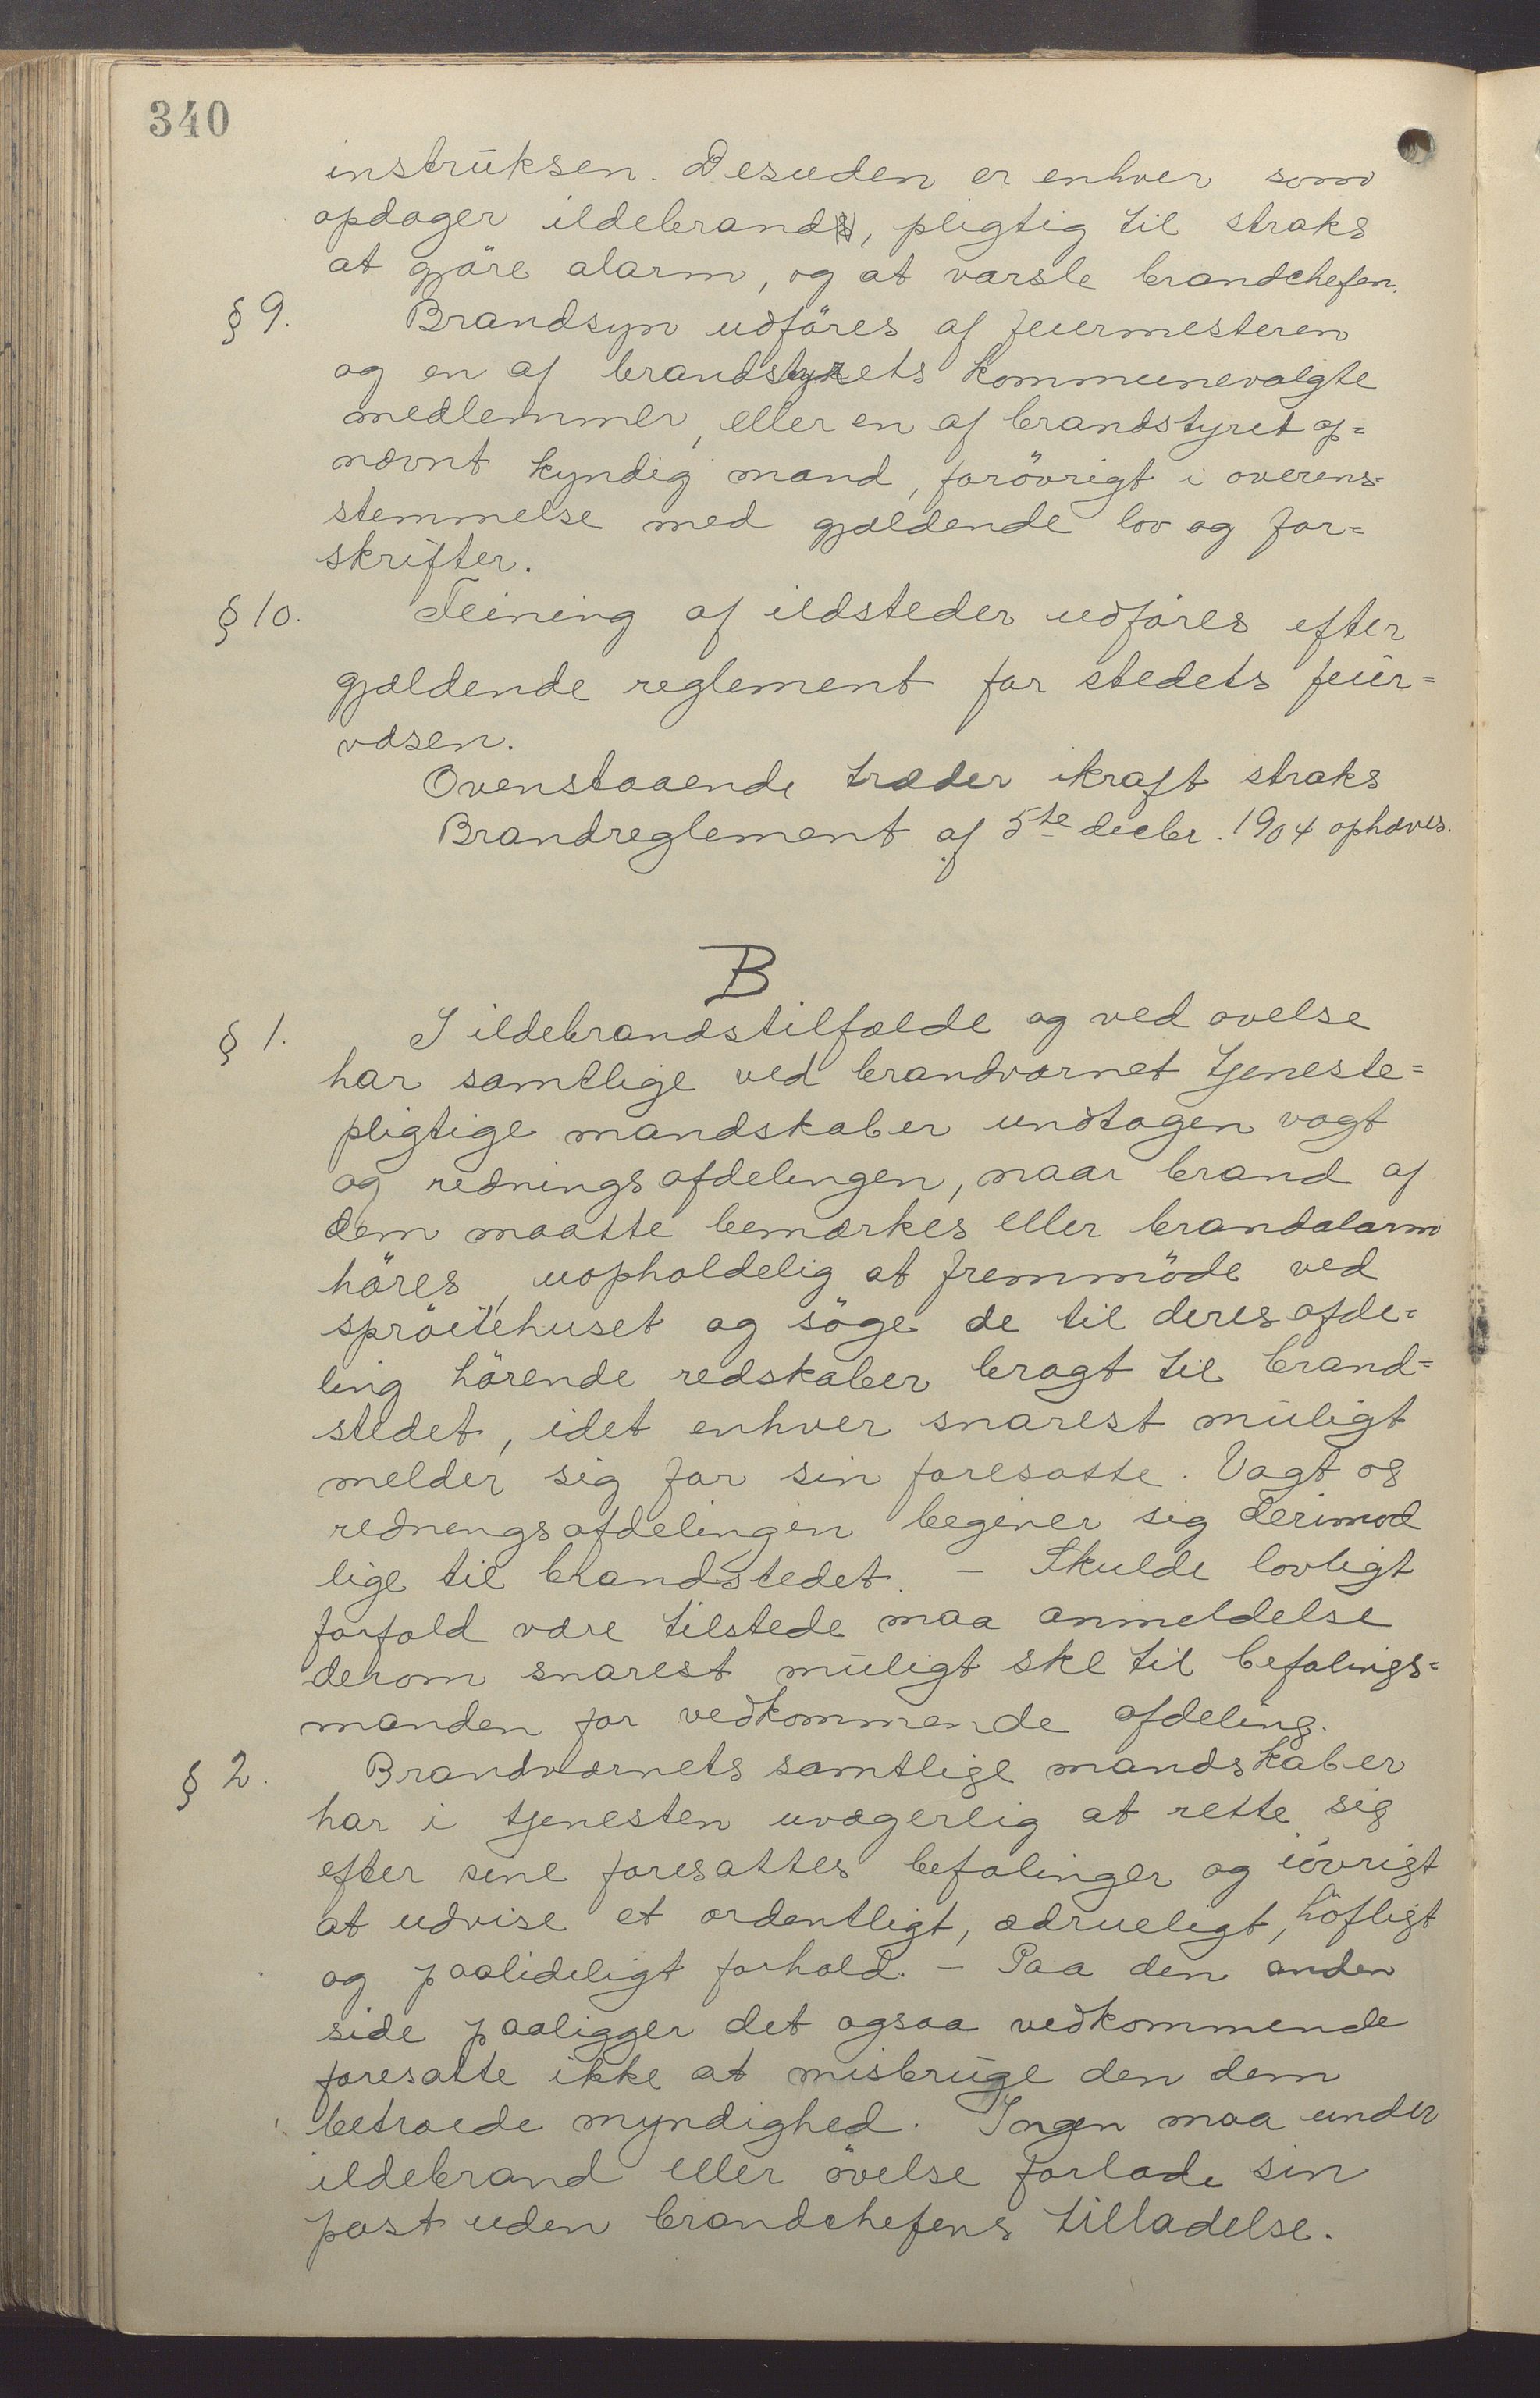 340
instruksen. Desuden er enhver som
opdager ildebrand, pligtig til straks
at gjöre alarm, og at varsle brandchefen.
§ 9. Brandsyn udföres af feiermesteren
og en af brandstyrets kommunevalgte
medlemmer, eller en af brandstyret op=
nævnt kyndig mand, forövrigt i overens=
stemmelse med gjældende lov og for=
skrifter.
§ 10. Feining af ildsteder udföres efter
gjældende reglement for stedets feier=
væsen.
Ovenstaaende træder ikraft straks
Brandreglement af 5te decbr. 1904 ophæves.
B
§ 1. I ildebrandstilfælde og ved ovelse
har samtlige ved brandværnet tjeneste=
pligtige mandskaber undtagen vagt
og redningsafdelingen, naar brand af
dem maatte bemærkes eller brandalarm
höres, uopholdelig at fremmöde ved
spröitehuset og söge de til deres afde=
ling hörende redskaber bragt til brand=
stedet, idet enhver snarest muligt
melder sig for sin foresatte. Vagt og
redningsafdelingen begiver sig derimod
lige til brandstedet. - Skulde lovligt
forfald være tilstede maa anmeldelse
derom snarest muligt ske til befalings=
manden for vedkommende afdeling.
§ 2. Brandværnets samtlige mandskaber
har i tjenesten uvægerlig at rette sig
efter sine foresattes befalinger og iövrigt
at udvise et ordentligt, ædrueligt, höfligt
og paalideligt forhold. - Paa den anden
side paaligger det ogsaa vedkommende
foresatte ikke at misbruge den dem
betroede myndighed. Ingen maa under
ildebrand eller övelse forlade sin
post uden brandchefens tilladelse.